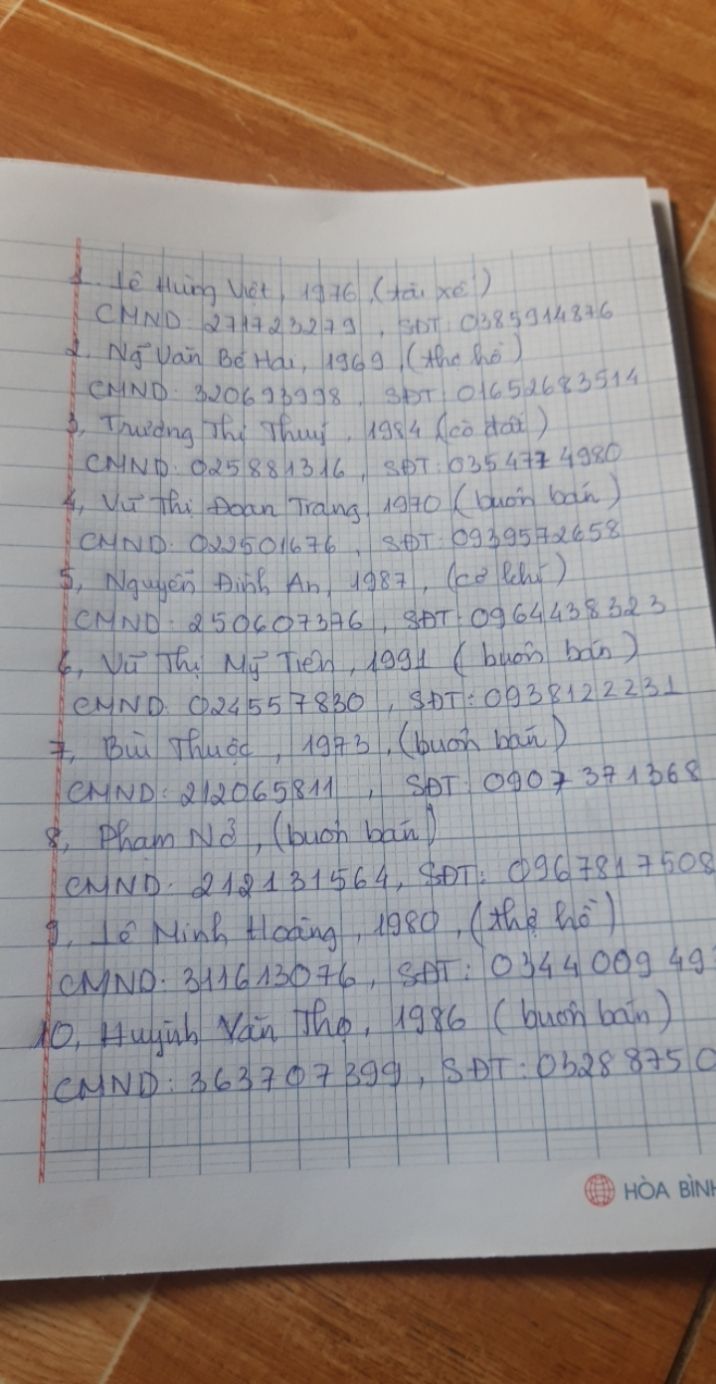 1. Lê Hùng Việt, 1976, (tài xế)
CMND: 271723279, SĐT: 0385914876
2. Ng̃ Văn Bé Hai, 1969, (thợ hồ)
CMND: 320693998, SĐT: 01652683514
3, Trương Thị Thuỳ, 1984 (cò đất)
CMND: 025881316, SĐT: 035477 4980
4, Vũ Thị Đoan Trang, 1970 (buôn bán)
CMND: 022501676, SĐT: 0939572658
5, Nguyễn Đình An, 1987, (cơ khí)
CMND: 250607376, SĐT: 0964438323
6, Vũ Thị Mỹ Tiên, 1991 (buôn bán)
CMND: 024557830, SĐT: 0938122231
7, Bùi Thuộc, 1973, (buôn bán)
CMND: 212065811, SĐT: 0907 371368
8, Phạm Nở, (buôn bán)
CMND: 212131564, SĐT: 0967817508
9, Lê Minh Hoàng, 1980, (thợ hồ)
CMND: 311613076, SĐT: 0344 009 49
10, Huỳnh Văn Thọ, 1986 (buôn bán)
CMND: 363707399, SĐT: 0328 8750
HÒA BÌNH